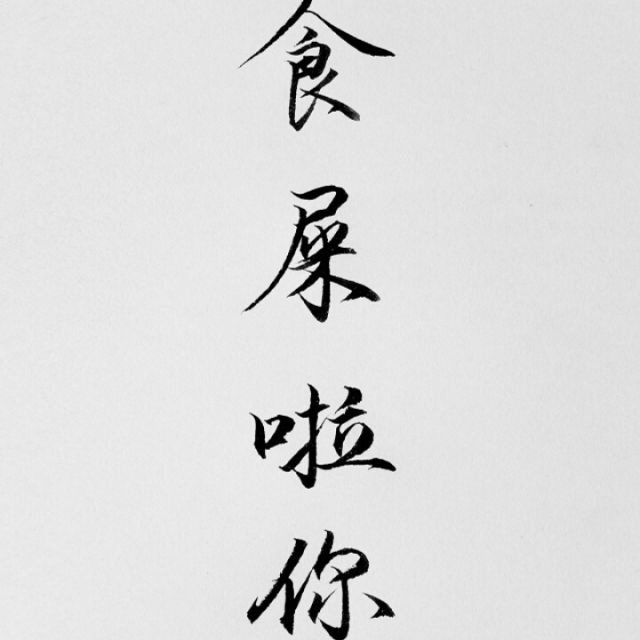 食屎啦你